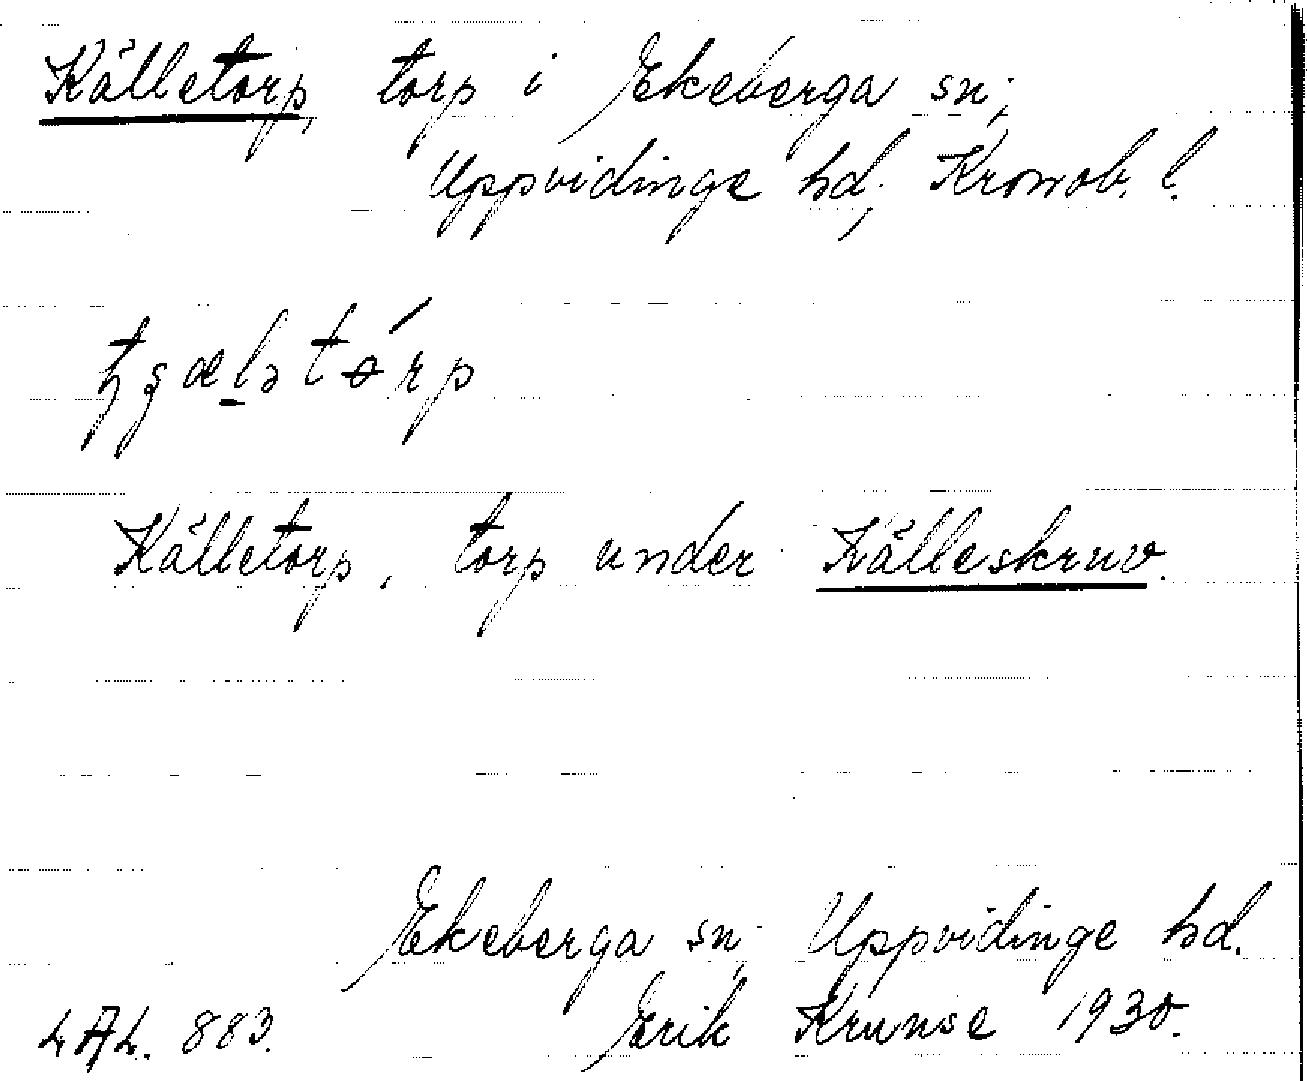 Källetorp, torp i Ekeberga sn;
Uppvidinge hd; Kronob. l.
Källetorp, torp under Källeskruv.
Ekeberga sn; Uppvidinge hd.
LAL. 883. Erik Krunse 1930.